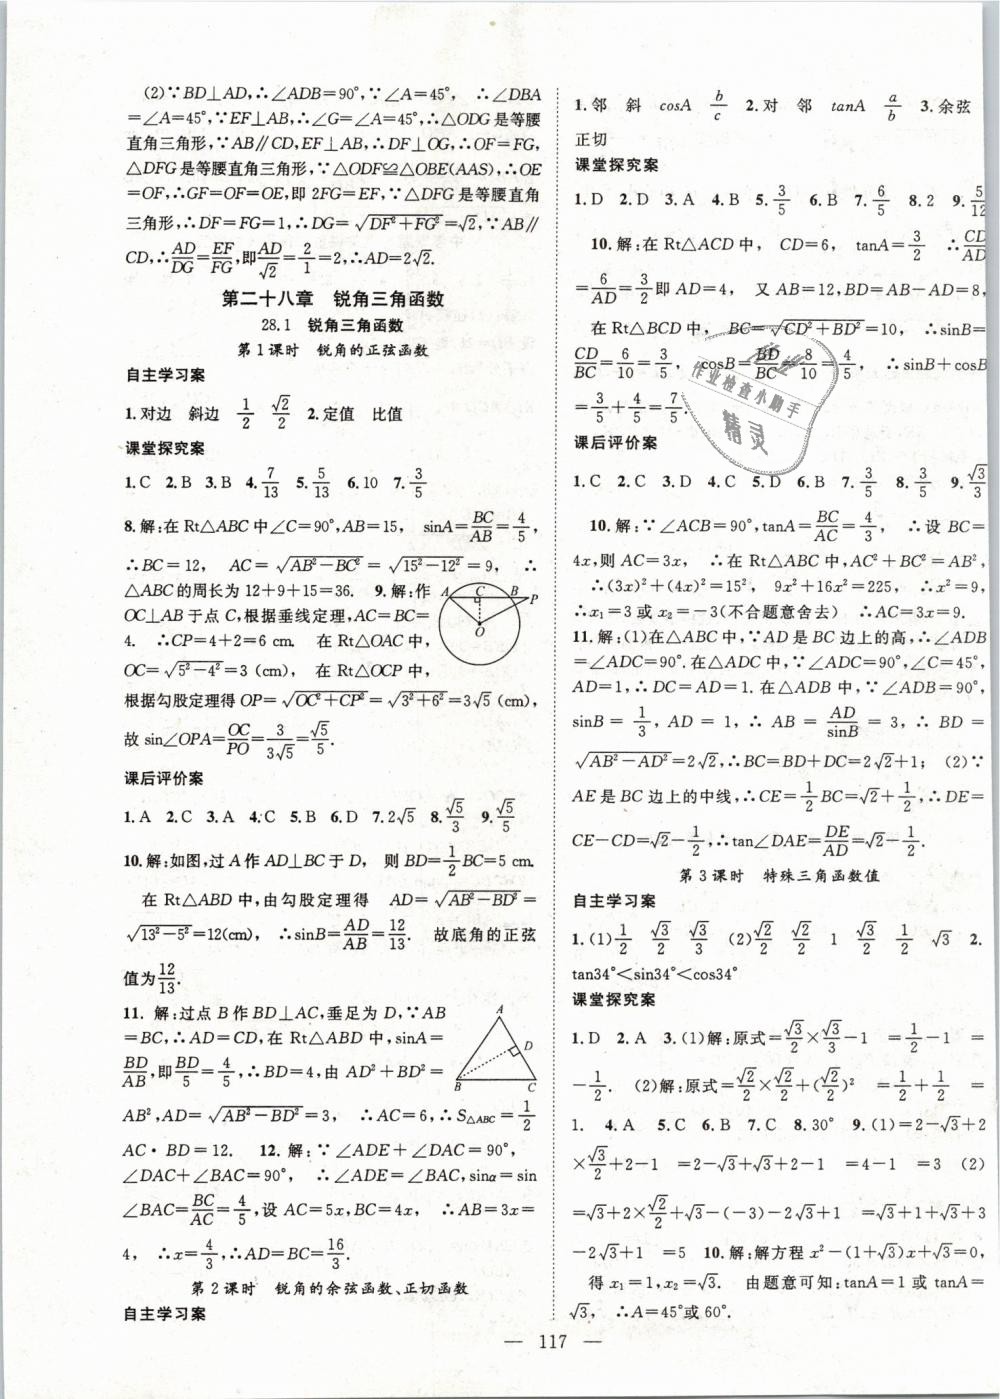 (2)∵BD⊥AD,∴∠ADB=90°,∵∠A=45°, ∴∠DBA
=∠A=45°,∵EF⊥AB,∴∠G=∠A=45°,∴△ODG是等腰
直角三角形,∵AB∥CD,EF⊥AB,∴DF⊥OG,∴OF=FG,
△DFG是等腰直角三角形,∵△ODF≌△OBE(AAS),∴OE
=OF,∴GF=OF=OE,即2FG=EF,∵△DFG是等腰直角
三角形,∴DF=FG=1,∴DG=√(DF²+FG²)=√2,∵AB∥
CD,∴AD/DG=EF/FG,即AD/√2=2/1=2,∴AD=2√2.
第二十八章 锐角三角函数
28.1 锐角三角函数
第1课时 锐角的正弦函数
自主学习案
1.对边 斜边 1/2 √2/2 2.定值 比值
课堂探究案
1.C 2.B 3.B 4.7/13 5.5/13 6.10 7.3/5
8.解:在Rt△ABC中∠C=90°,AB=15, sinA=BC/AB=4/5,
∴BC=12, AC=√(AB²-BC²)=√(15²-12²)=9, ∴
△ABC的周长为12+9+15=36. 9.解:作
OC⊥AB于点C,根据垂线定理,AC=BC=
4. ∴CP=4+2=6 cm. 在Rt△OAC中,
OC=√(5²-4²)=3(cm), 在Rt△OCP中,
根据勾股定理得OP=√(OC²+CP²)=√(3²+6²)=3√5(cm),
故sin∠OPA=OC/PO=3/3√5=√5/5.
A C B P
O
课后评价案
1.A 2.C 3.A 4.C 5.B 6.D 7.2√5 8.√5/3 9.√5/5
10.解:如图,过A作AD⊥BC于D, 则BD=1/2BC=5 cm.
在Rt△ABD中,由勾股定理得 AD=√(AB²-BD²)=
√(13²-5²)=12(cm), ∴sinB=AD/AB=12/13. 故底角的正弦
值为12/13.
11.解:过点B作BD⊥AC,垂足为D,∵AB
=BC,∴AD=CD,在Rt△ABD中,sinA=
BD/AB,即BD/5=4/5,∴BD=4,由AD²+BD²=
AB²,AD=√(AB²-BD²)=3, ∴AC=6,∴S△ABC=1/2
AC·BD=12. 12.解:∵∠ADE+∠DAC=90°,
∠DAC+∠BAC=90°, ∴∠ADE=∠BAC,sinα=sin
∠BAC=BC/AC=4/5,设AC=5x,BC=4x, ∴AB=3x=
4, ∴x=4/3,∴AD=BC=16/3.
A
D
B C
第2课时 锐角的余弦函数、正切函数
自主学习案
1.邻 斜 cosA b/c 2.对 邻 tanA a/b 3.余弦
正切
课堂探究案
1.D 2.D 3.A 4.B 5.3/5 6.B 7.6/5 8.2 9.5/12
10.解:在Rt△ACD中, CD=6, tanA=3/2 ∴CD/AD
=6/AD=3/2即AD=4, 又AB=12,BD=AB-AD=8,
在Rt△BCD中, BC=√(CD²+BD²)=10, ∴sinB=
CD/BC=6/10=3/5, cosB=BD/BC=8/10=4/5, ∴sinB+cosB
=3/5+4/5=7/5.
作业检查小助手
精灵
课后评价案
1.C 2.C 3.D 4.C 5.D 6.B 7.3/5 8.3/5 9.√3/3
10.解:∵∠ACB=90°,tanA=BC/AC=4/3, ∴设BC=
4x,则AC=3x, ∴在Rt△ABC中,AC²+BC²=AB²,
∴(3x)²+(4x)²=15², 9x²+16x²=225, ∴x²=9,
∴x₁=3或x₂=-3(不合题意舍去) ∴AC=3x=9.
11.解:(1)在△ABC中,∵AD是BC边上的高,∴∠ADB
=∠ADC=90°.在△ADC中,∵∠ADC=90°,∠C=45°,
AD=1,∴DC=AD=1.在△ADB中,∵∠ADB=90°,
sinB=1/3,AD=1,∴AB=AD/sinB=3,∴BD=
√(AB²-AD²)=2√2,∴BC=BD+DC=2√2+1; (2)∵
AE是BC边上的中线,∴CE=1/2BC=√2+1/2,∴DE=
CE-CD=√2-1/2,∴tan∠DAE=DE/AD=√2-1/2.
第3课时 特殊三角函数值
自主学习案
1.(1)1/2 √3/2 √3/3 (2)√2/2 √2/2 1 √3/2 1/2 √3 2.
tan34°<sin34°<cos34°
课堂探究案
1.D 2.A 3.(1)解:原式=√3/2×√3/3-1 =1/2-1 =
-1/2. (2)解:原式=√2/2×√2/2+(√2/2)² =1/2+1/2=
1. 4.A 5.C 6.B 7.C 8.30° 9.(1)=2-√3+2
×√3/2+2-1 =2-√3+√3+2-1 =4-1 =3 (2)
=√3+2×√2/2+√3-(-3)-2√3+1 =√3+1+√3+3
-2√3+1 =5 10.解:解方程x²-(1+√3)x+√3=0,
得x₁=1,x₂=√3. 由题意可知:tanA=1或tanA=
√3, ∴A=45°或60°.
— 117 —